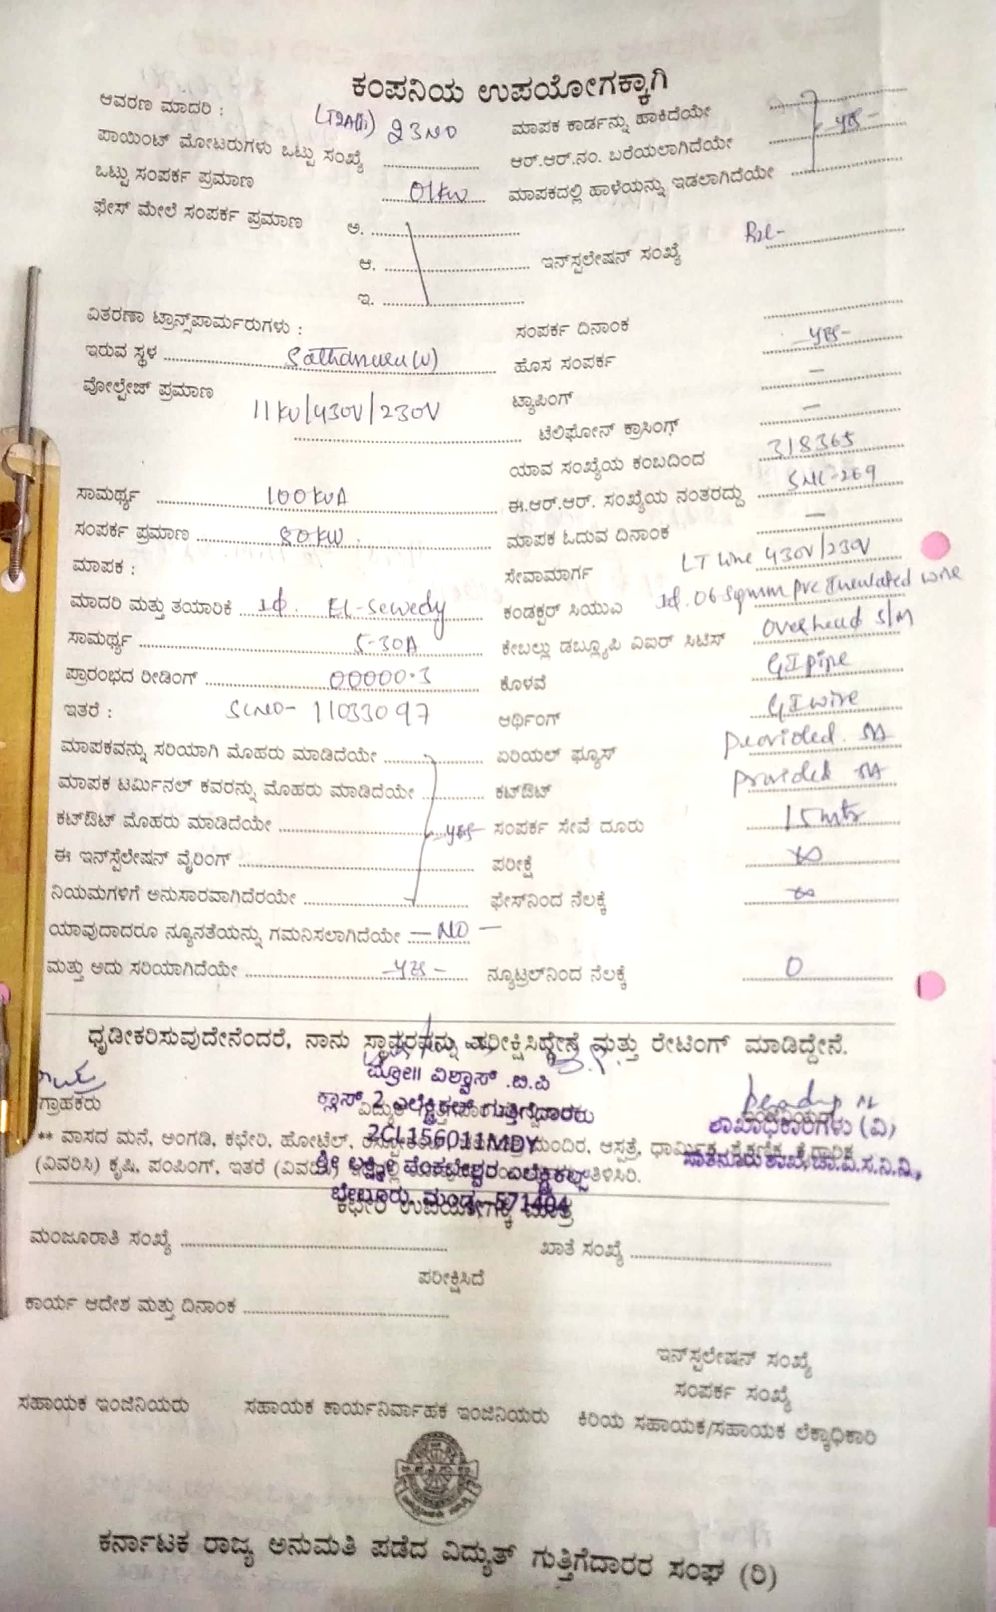 ಕಂಪನಿಯ ಉಪಯೋಗಕ್ಕಾಗಿ
ಆವರಣ ಮಾದರಿ : LT2A(ii) 23NO ಮಾಪಕ ಕಾರ್ಡನ್ನು ಹಾಕಿದೆಯೇ
ಪಾಯಿಂಟ್ ಮೋಟರುಗಳು ಒಟ್ಟು ಸಂಖ್ಯೆ ಆರ್.ಆರ್.ನಂ. ಬರೆಯಲಾಗಿದೆಯೇ - yes -
ಒಟ್ಟು ಸಂಪರ್ಕ ಪ್ರಮಾಣ 01KW ಮಾಪಕದಲ್ಲಿ ಹಾಳೆಯನ್ನು ಇಡಲಾಗಿದೆಯೇ
ಫೇಸ್ ಮೇಲೆ ಸಂಪರ್ಕ ಪ್ರಮಾಣ ಅ.
ಆ. ಇನ್‌ಸ್ಟಲೇಷನ್ ಸಂಖ್ಯೆ
ಇ.
ವಿತರಣಾ ಟ್ರಾನ್ಸ್‌ಪಾರ್ಮರುಗಳು : ಸಂಪರ್ಕ ದಿನಾಂಕ
ಇರುವ ಸ್ಥಳ Sathanuru(v) ಹೊಸ ಸಂಪರ್ಕ - yes -
ವೋಲ್ಟೇಜ್ ಪ್ರಮಾಣ 11KV/430V/230V ಟ್ಯಾಪಿಂಗ್ —
ಟೆಲಿಫೋನ್ ಕ್ರಾಸಿಂಗ್ —
ಯಾವ ಸಂಖ್ಯೆಯ ಕಂಬದಿಂದ 318365
ಸಾಮರ್ಥ್ಯ 100KVA ಈ.ಆರ್.ಆರ್. ಸಂಖ್ಯೆಯ ನಂತರದ್ದು
ಸಂಪರ್ಕ ಪ್ರಮಾಣ 80KW. ಮಾಪಕ ಓದುವ ದಿನಾಂಕ —
ಮಾಪಕ : ಸೇವಾಮಾರ್ಗ LT line 430V/230V
ಮಾದರಿ ಮತ್ತು ತಯಾರಿಕೆ 1ϕ. EL-Sewedy ಕಂಡಕ್ಟರ್ ಸಿಯುಎ 1ϕ. 06 Sqmm Pvc Insulated wire
ಸಾಮರ್ಥ್ಯ 5-30A ಕೇಬಲ್ಲು ಡಬ್ಲ್ಯೂಪಿ ಎಐಆರ್ ಸಿಟಿಸ್ overhead S/M
ಪ್ರಾರಂಭದ ರೀಡಿಂಗ್ 00000.3 ಕೊಳವೆ GI pipe
ಇತರೆ : SLNO- 11033097 ಆರ್ಥಿಂಗ್ GI wire
ಮಾಪಕವನ್ನು ಸರಿಯಾಗಿ ಮೊಹರು ಮಾಡಿದೆಯೇ ಏರಿಯಲ್ ಫ್ಯೂಸ್ Provided.
ಮಾಪಕ ಟರ್ಮಿನಲ್ ಕವರನ್ನು ಮೊಹರು ಮಾಡಿದೆಯೇ ಕಟ್‌ಔಟ್ Provided
ಕಟ್‌ಔಟ್ ಮೊಹರು ಮಾಡಿದೆಯೇ - yes - ಸಂಪರ್ಕ ಸೇವೆ ದೂರು 15 mts
ಈ ಇನ್‌ಸ್ಟೆಲೇಷನ್ ವೈರಿಂಗ್ ಪರೀಕ್ಷೆ ∞
ನಿಯಮಗಳಿಗೆ ಅನುಸಾರವಾಗಿದೆರಯೇ ಫೇಸ್‌ನಿಂದ ನೆಲಕ್ಕೆ ∞
ಯಾವುದಾದರೂ ನ್ಯೂನತೆಯನ್ನು ಗಮನಿಸಲಾಗಿದೆಯೇ — NO —
ಮತ್ತು ಅದು ಸರಿಯಾಗಿದೆಯೇ - yes - ನ್ಯೂಟ್ರಲ್‌ನಿಂದ ನೆಲಕ್ಕೆ 0
ಧೃಡೀಕರಿಸುವುದೇನೆಂದರೆ, ನಾನು ಸ್ಥಾವರವನ್ನು ಪರೀಕ್ಷಿಸಿದ್ದೇನೆ ಮತ್ತು ರೇಟಿಂಗ್ ಮಾಡಿದ್ದೇನೆ.
ಪ್ರೋ॥ ವಿಶ್ವಾಸ್ .ಬಿ.ಪಿ
ಗ್ರಾಹಕರು ಕ್ಲಾಸ್ 2 ಎಲೆಕ್ಟ್ರಿಕಲ್ ಗುತ್ತಿಗೆದಾರರು ಶಾಖಾಧಿಕಾರಿಗಳು (ವಿ)
2CL156011MDY
** ವಾಸದ ಮನೆ, ಅಂಗಡಿ, ಕಛೇರಿ, ಹೋಟೆಲ್, ಮಂದಿರ, ಆಸ್ಪತ್ರೆ,
ಸಾತನೂರು ಶಾಖೆ, ಚಾ.ವಿ.ಸ.ನಿ.ನಿ.,
(ವಿವರಿಸಿ) ಕೃಷಿ, ಪಂಪಿಂಗ್, ಇತರೆ ತಿಳಿಸಿರಿ.
ಶ್ರೀ ಲಕ್ಷ್ಮೀ ವೆಂಕಟೇಶ್ವರ ಎಲೆಕ್ಟ್ರಿಕಲ್ಸ್
ಬೇಲೂರು, ಮಂಡ್ಯ-571404
ಕಛೇರಿ ಉಪಯೋಗಕ್ಕೆ ಮಾತ್ರ
ಮಂಜೂರಾತಿ ಸಂಖ್ಯೆ ಖಾತೆ ಸಂಖ್ಯೆ
ಪರೀಕ್ಷಿಸಿದೆ
ಕಾರ್ಯ ಆದೇಶ ಮತ್ತು ದಿನಾಂಕ
ಇನ್‌ಸ್ಟಲೇಷನ್ ಸಂಖ್ಯೆ
ಸಂಪರ್ಕ ಸಂಖ್ಯೆ
ಸಹಾಯಕ ಇಂಜಿನಿಯರು ಸಹಾಯಕ ಕಾರ್ಯನಿರ್ವಾಹಕ ಇಂಜಿನಿಯರು ಕಿರಿಯ ಸಹಾಯಕ/ಸಹಾಯಕ ಲೆಕ್ಕಾಧಿಕಾರಿ
ಕರ್ನಾಟಕ ರಾಜ್ಯ ಅನುಮತಿ ಪಡೆದ ವಿದ್ಯುತ್ ಗುತ್ತಿಗೆದಾರರ ಸಂಘ (ರಿ)